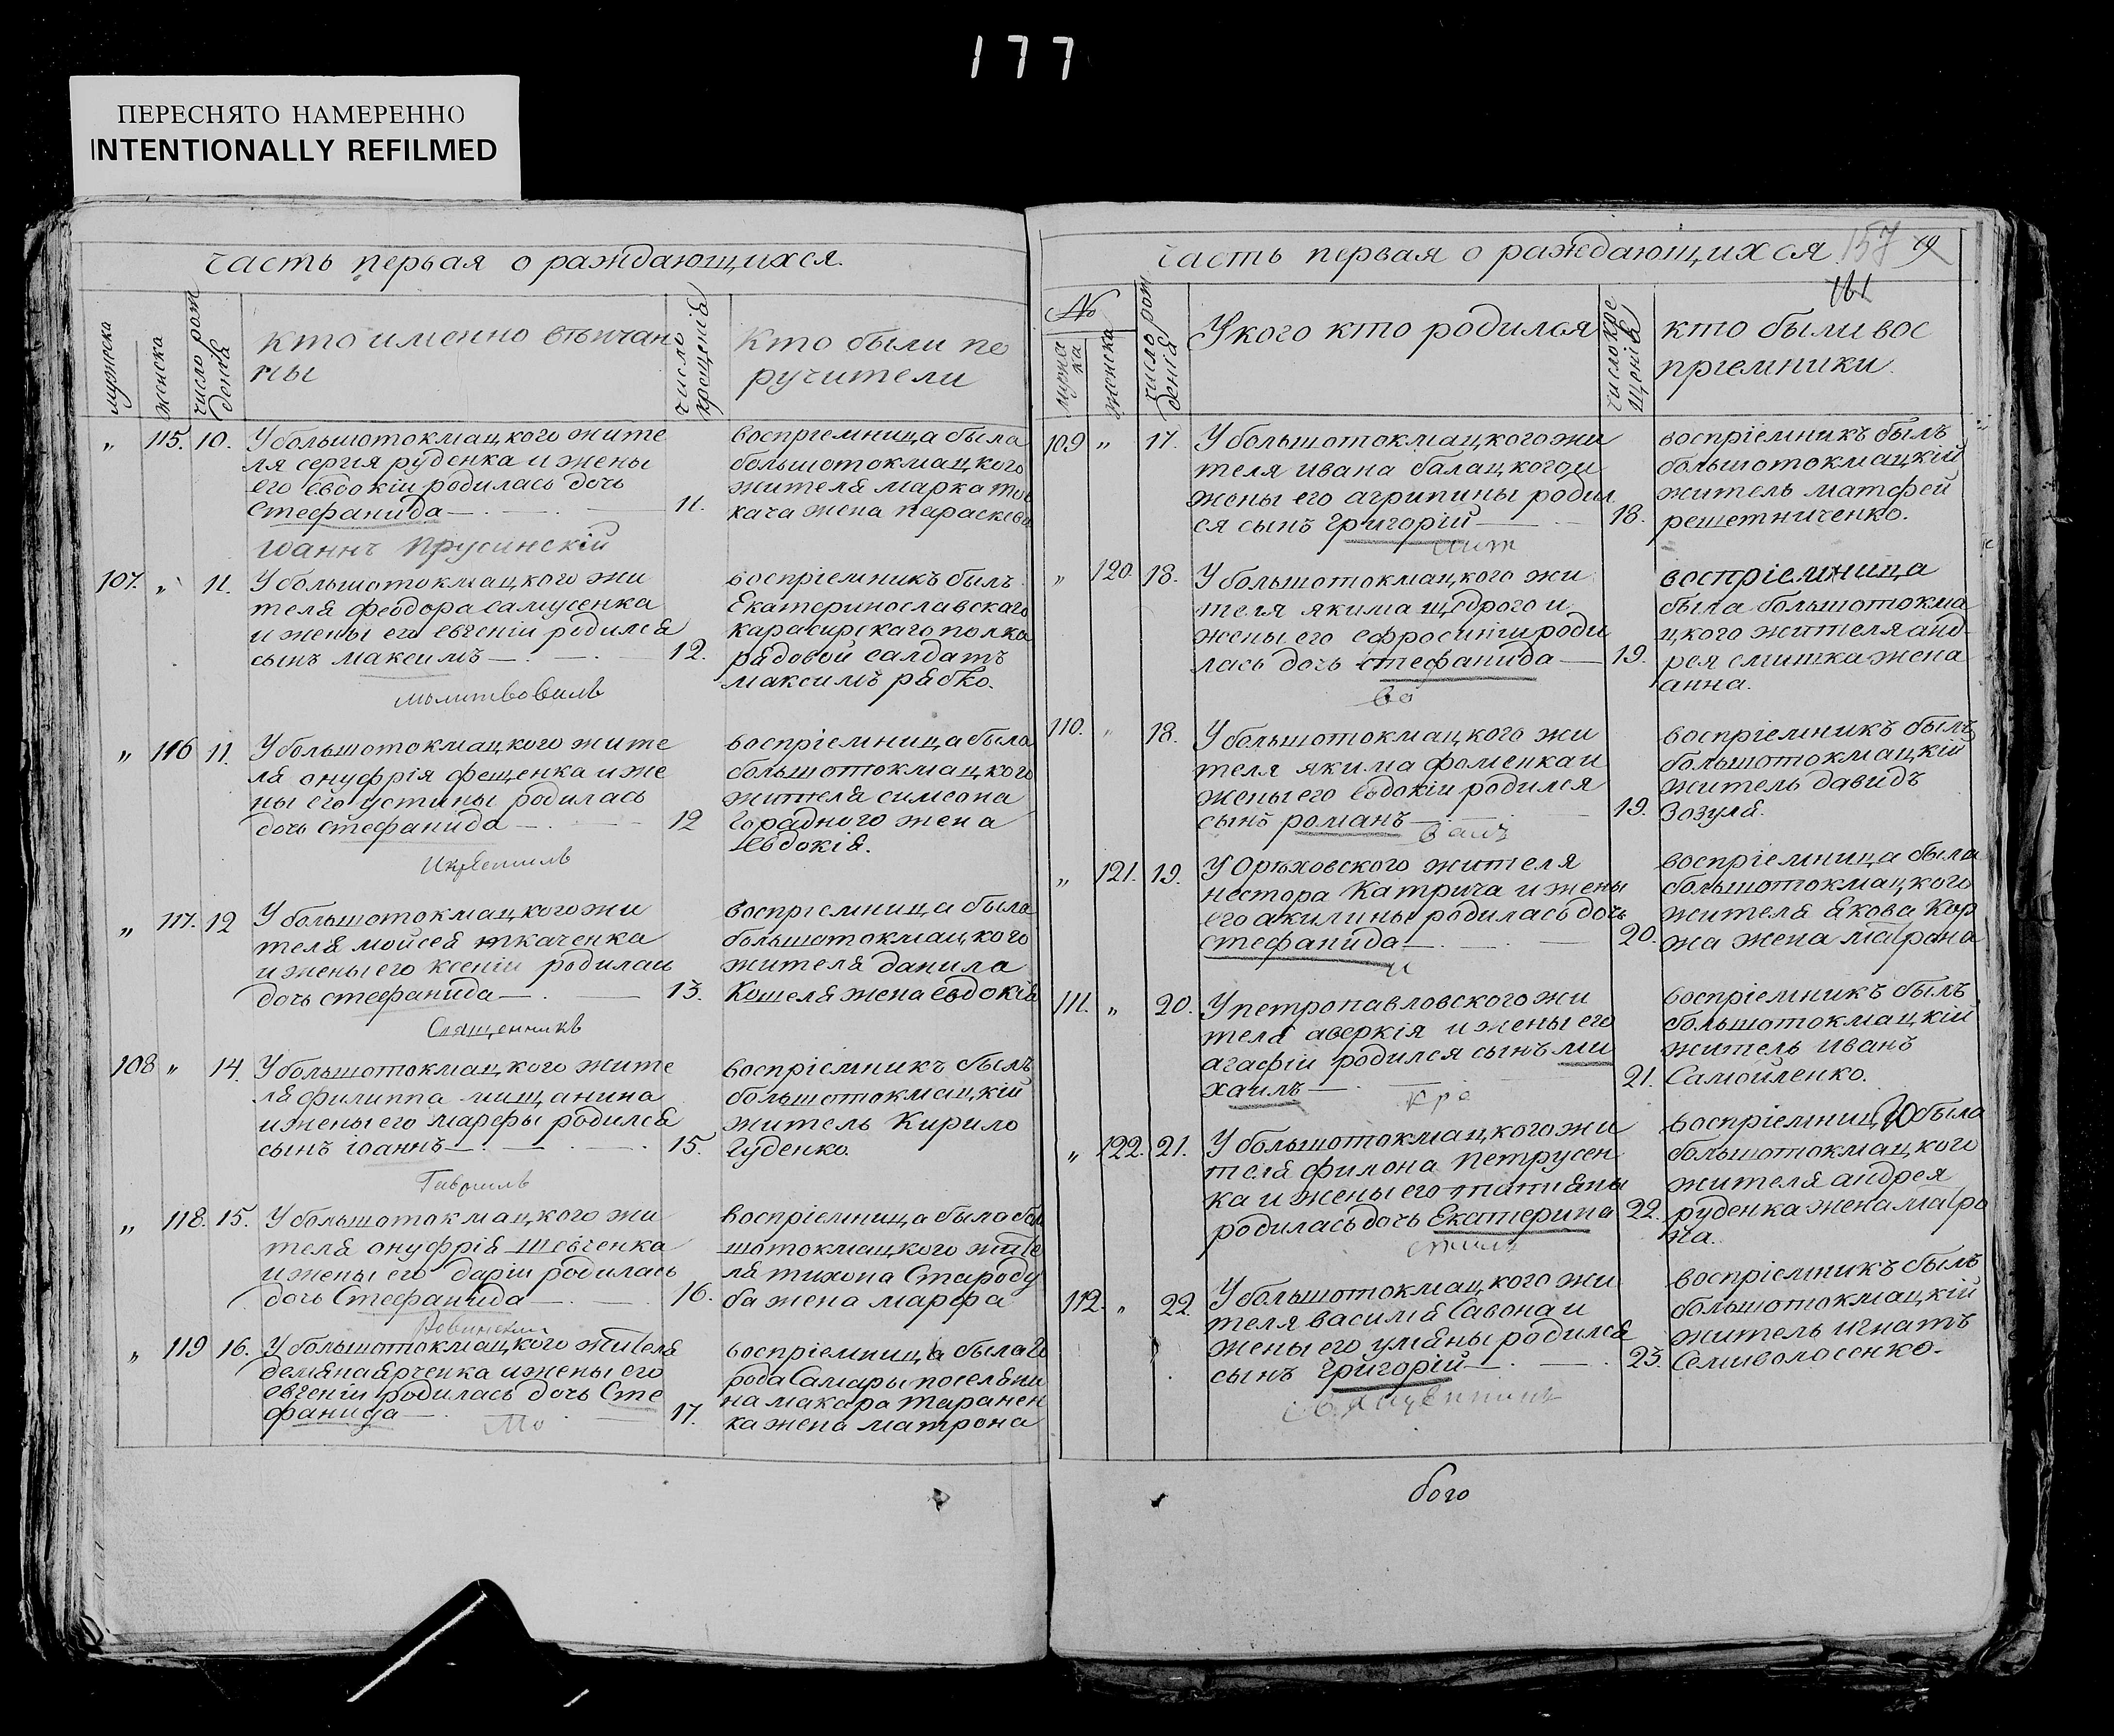 177
ПЕРЕСНЯТО НАМЕРЕННО
INTENTIONALLY REFILMED
часть первая о раждающихся.
мужеска
женска
число рож
денія
кто именно вѣнчан
ны
число
крещенія
Кто были по
ручители
„ 115. 10. У большотокмацкого жите
ля сергия руденка и жены
его Евдокіи родилась дочь
Стефанида — 11.
воспріемница была
большотокмацкого
жителя марка тка
кача жена параскева
Іоаннъ Прусинскій
107. „ 11. У большотокмацкого жи
теля феодора самусенка
и жены его евгеніи родился
сынъ максимъ — 12.
воспріемникъ былъ
Екатеринославскаго
карасирскаго полка
рядовой салдатъ
максимъ рябко.
молитвовалъ
„ 116 11. У большотокмацкого жите
ля онуфрія фещенка и же
ны его устины родилась
дочь стефанида — 12
воспріемница была
большотокмацкого
жителя симеона
Горадного жена
Евдокія.
И крестилъ
„ 117. 12 У большотокмацкого жи
теля мойсея ткаченка
и жены его ксеніи родилась
дочь стефанида — 13.
воспріемница была
большотокмацкого
жителя данила
Кошеля жена евдокія
Священникъ
108 „ 14. У большотокмацкого жите
ля филиппа мищанина
и жены его марфы родился
сынъ іоаннъ — 15.
воспріемникъ былъ
большотокмацкій
житель Кирило
Гуденко.
Гавріилъ
„ 118. 15. У большотокмацкого жи
теля онуфрія шевченка
и жены его даріи родилась
дочь Стефанида — 16.
воспріемница была бол
шотокмацкого жите
ля тихона Староду
ба жена марфа
Ровинскій
„ 119 16. У большотокмацкого жителя
демяна ярченка и жены его
евгеніи родилась дочь Сте
фанида — 17.
воспріемница была го
рода Самары поселяни
на макара таранен
ка жена матрона
Мо
часть первая о раждающихся
157
161
№
мужес
ка
женска
число рож
денія
У кого кто родился
число кре
щенія
кто были вос
пріемники.
109 „ 17. У большотокмацкого жи
теля ивана балацкого и
жены его агрипины родил
ся сынъ Григорій — 18.
воспріемникъ былъ
большотокмацкій
житель матфей
решетниченко.
лит
„ 120. 18. У большотокмацкого жи
теля якима щедрого и
жены его ефросиніи роди
лась дочь стефанида — 19.
воспріемница
была большотокма
цкого жителя анд
рея слишка жена
анна.
во
110. „ 18. У большотокмацкого жи
теля якима фоменка и
жены его евдокіи родился
сынъ романъ — 19.
воспріемникъ былъ
большотокмацкій
житель давидъ
Зозуля.
валъ
„ 121. 19. У Орѣховского жителя
нестора Катрича и жены
его акилины родилась дочь
стефанида — 20.
воспріемница была
большотокмацкого
жителя якова Кор
жа жена матрона
и
111. „ 20. У петропавловского жи
теля аверкія и жены его
агафіи родился сынъ ми
хаилъ — 21.
воспріемникъ былъ
большотокмацкій
житель иванъ
Самойленко.
кре
„ 122. 21. У большотокмацкого жи
теля филона петрусен
ка и жены его татіяны
родилась дочь Екатерина 22.
воспріемница была
большотокмацкого
жителя андрея
руденка жена матро
на.
стилъ
112. „ 22. У большотокмацкого жи
теля василя Савона и
жены его уляны родился
сынъ Григорій — 23.
воспріемникъ былъ
большотокмацкій
житель игнатъ
Семиволосенко.
Священникъ
бого